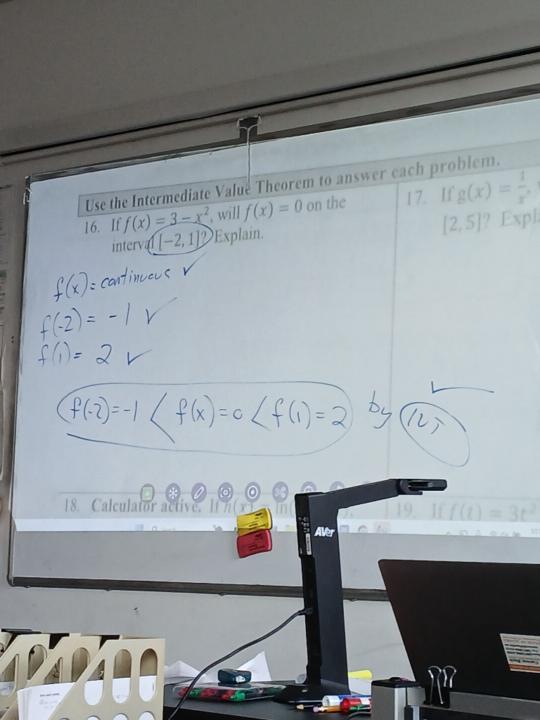 Use the Intermediate Value Theorem to answer each problem.
16. If f(x) = 3 − x², will f(x) = 0 on the
interval [−2, 1]? Explain.
17. If g(x) = 1/x,
[2, 5]? Expl
f(x) = continuous ✓
f(-2) = -1 ✓
f(1) = 2 ✓
f(-2) = -1 < f(x) = 0 < f(1) = 2 by
18. Calculator active. If h(x)
19. If f(t) = 3t²
AVer